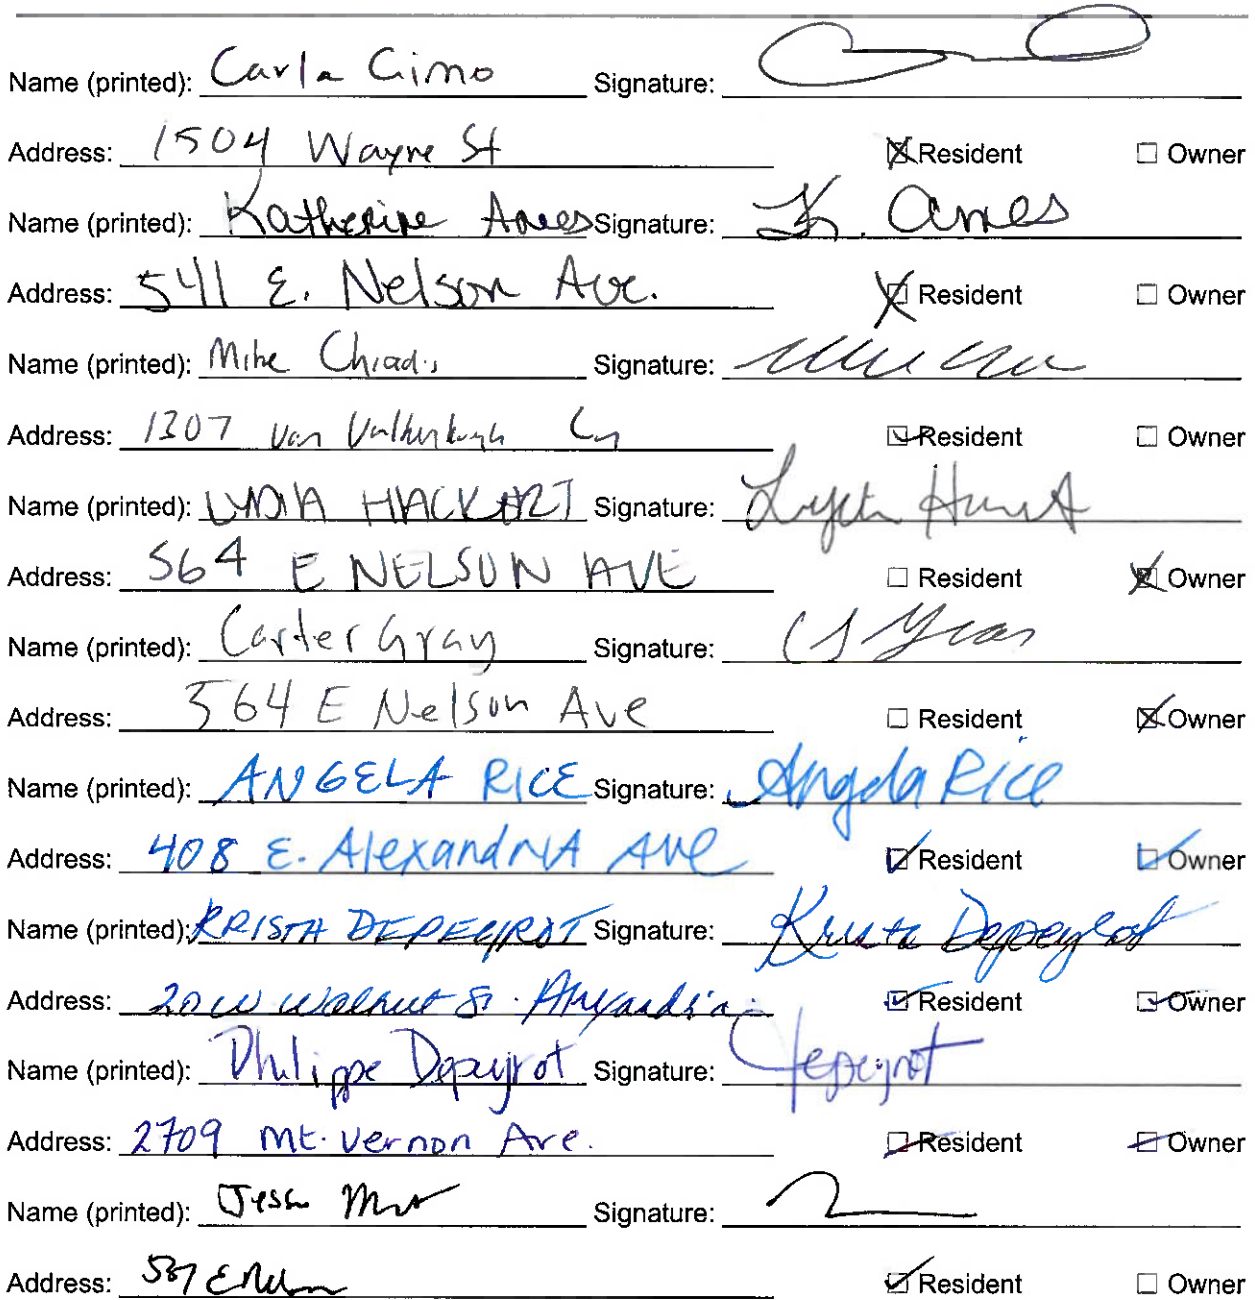 Name (printed): Carla Cimo Signature:
Address: 1504 Wayne St ☒ Resident ☐ Owner
Name (printed): Katherine Ames Signature: K. Ames
Address: 541 E. Nelson Ave. ☒ Resident ☐ Owner
Name (printed): Mike Signature:
Address: 1307 Van Valkenburgh Ln ☑ Resident ☐ Owner
Name (printed): LYDIA Signature:
Address: 564 E NELSON AVE ☐ Resident ☒ Owner
Name (printed): Carter Gray Signature: Gray
Address: 564 E Nelson Ave ☐ Resident ☒ Owner
Name (printed): ANGELA RICE Signature: Angela Rice
Address: 408 E. Alexandria Ave ☑ Resident ☑ Owner
Name (printed): KRISTA DEPEYROT Signature: Krista Depeyrot
Address: 20 W Walnut St. Alexandria ☑ Resident ☑ Owner
Name (printed): Philippe Depeyrot Signature: Depeyrot
Address: 2709 Mt. Vernon Ave. ☑ Resident ☑ Owner
Name (printed): Signature:
Address: E Nelson ☑ Resident ☐ Owner